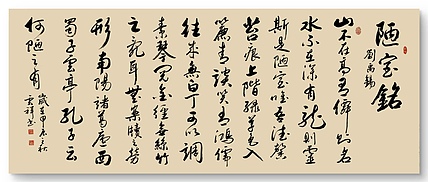 陋室銘
劉禹錫
山不在高有僊則名
水不在深有龍則靈
斯是陋室唯吾德馨
苔痕上階綠草色入
簾青談笑有鴻儒
往來無白丁可以調
素琴閱金經無絲竹
之亂耳無案牘之勞
形南陽諸葛廬西
蜀子雲亭孔子云
何陋之有
歲甲之秋
書